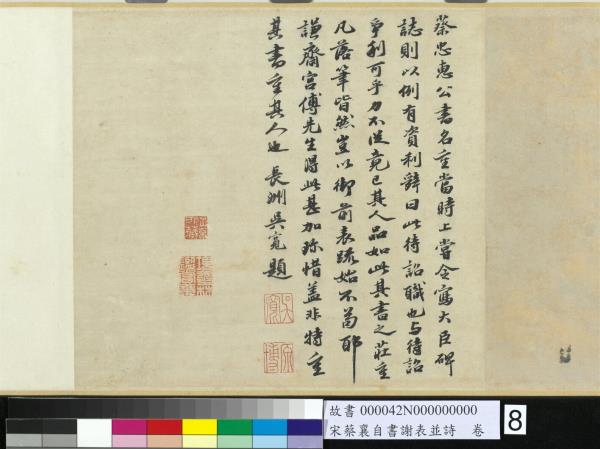 蔡忠惠公書名重當時上嘗令寫大臣碑
誌則以例有資利辭曰此待詔職也与待詔
爭利可乎力不從竟已其人品如此其書之莊重
凡落筆皆然豈以御前表疏姑不苟耶
謙齋宮傅先生得此甚加珍惜盖非特重
其書重其人也 長洲吳寬題
吳寬
原博
故書 000042N000000000
宋蔡襄自書謝表並詩 卷
8